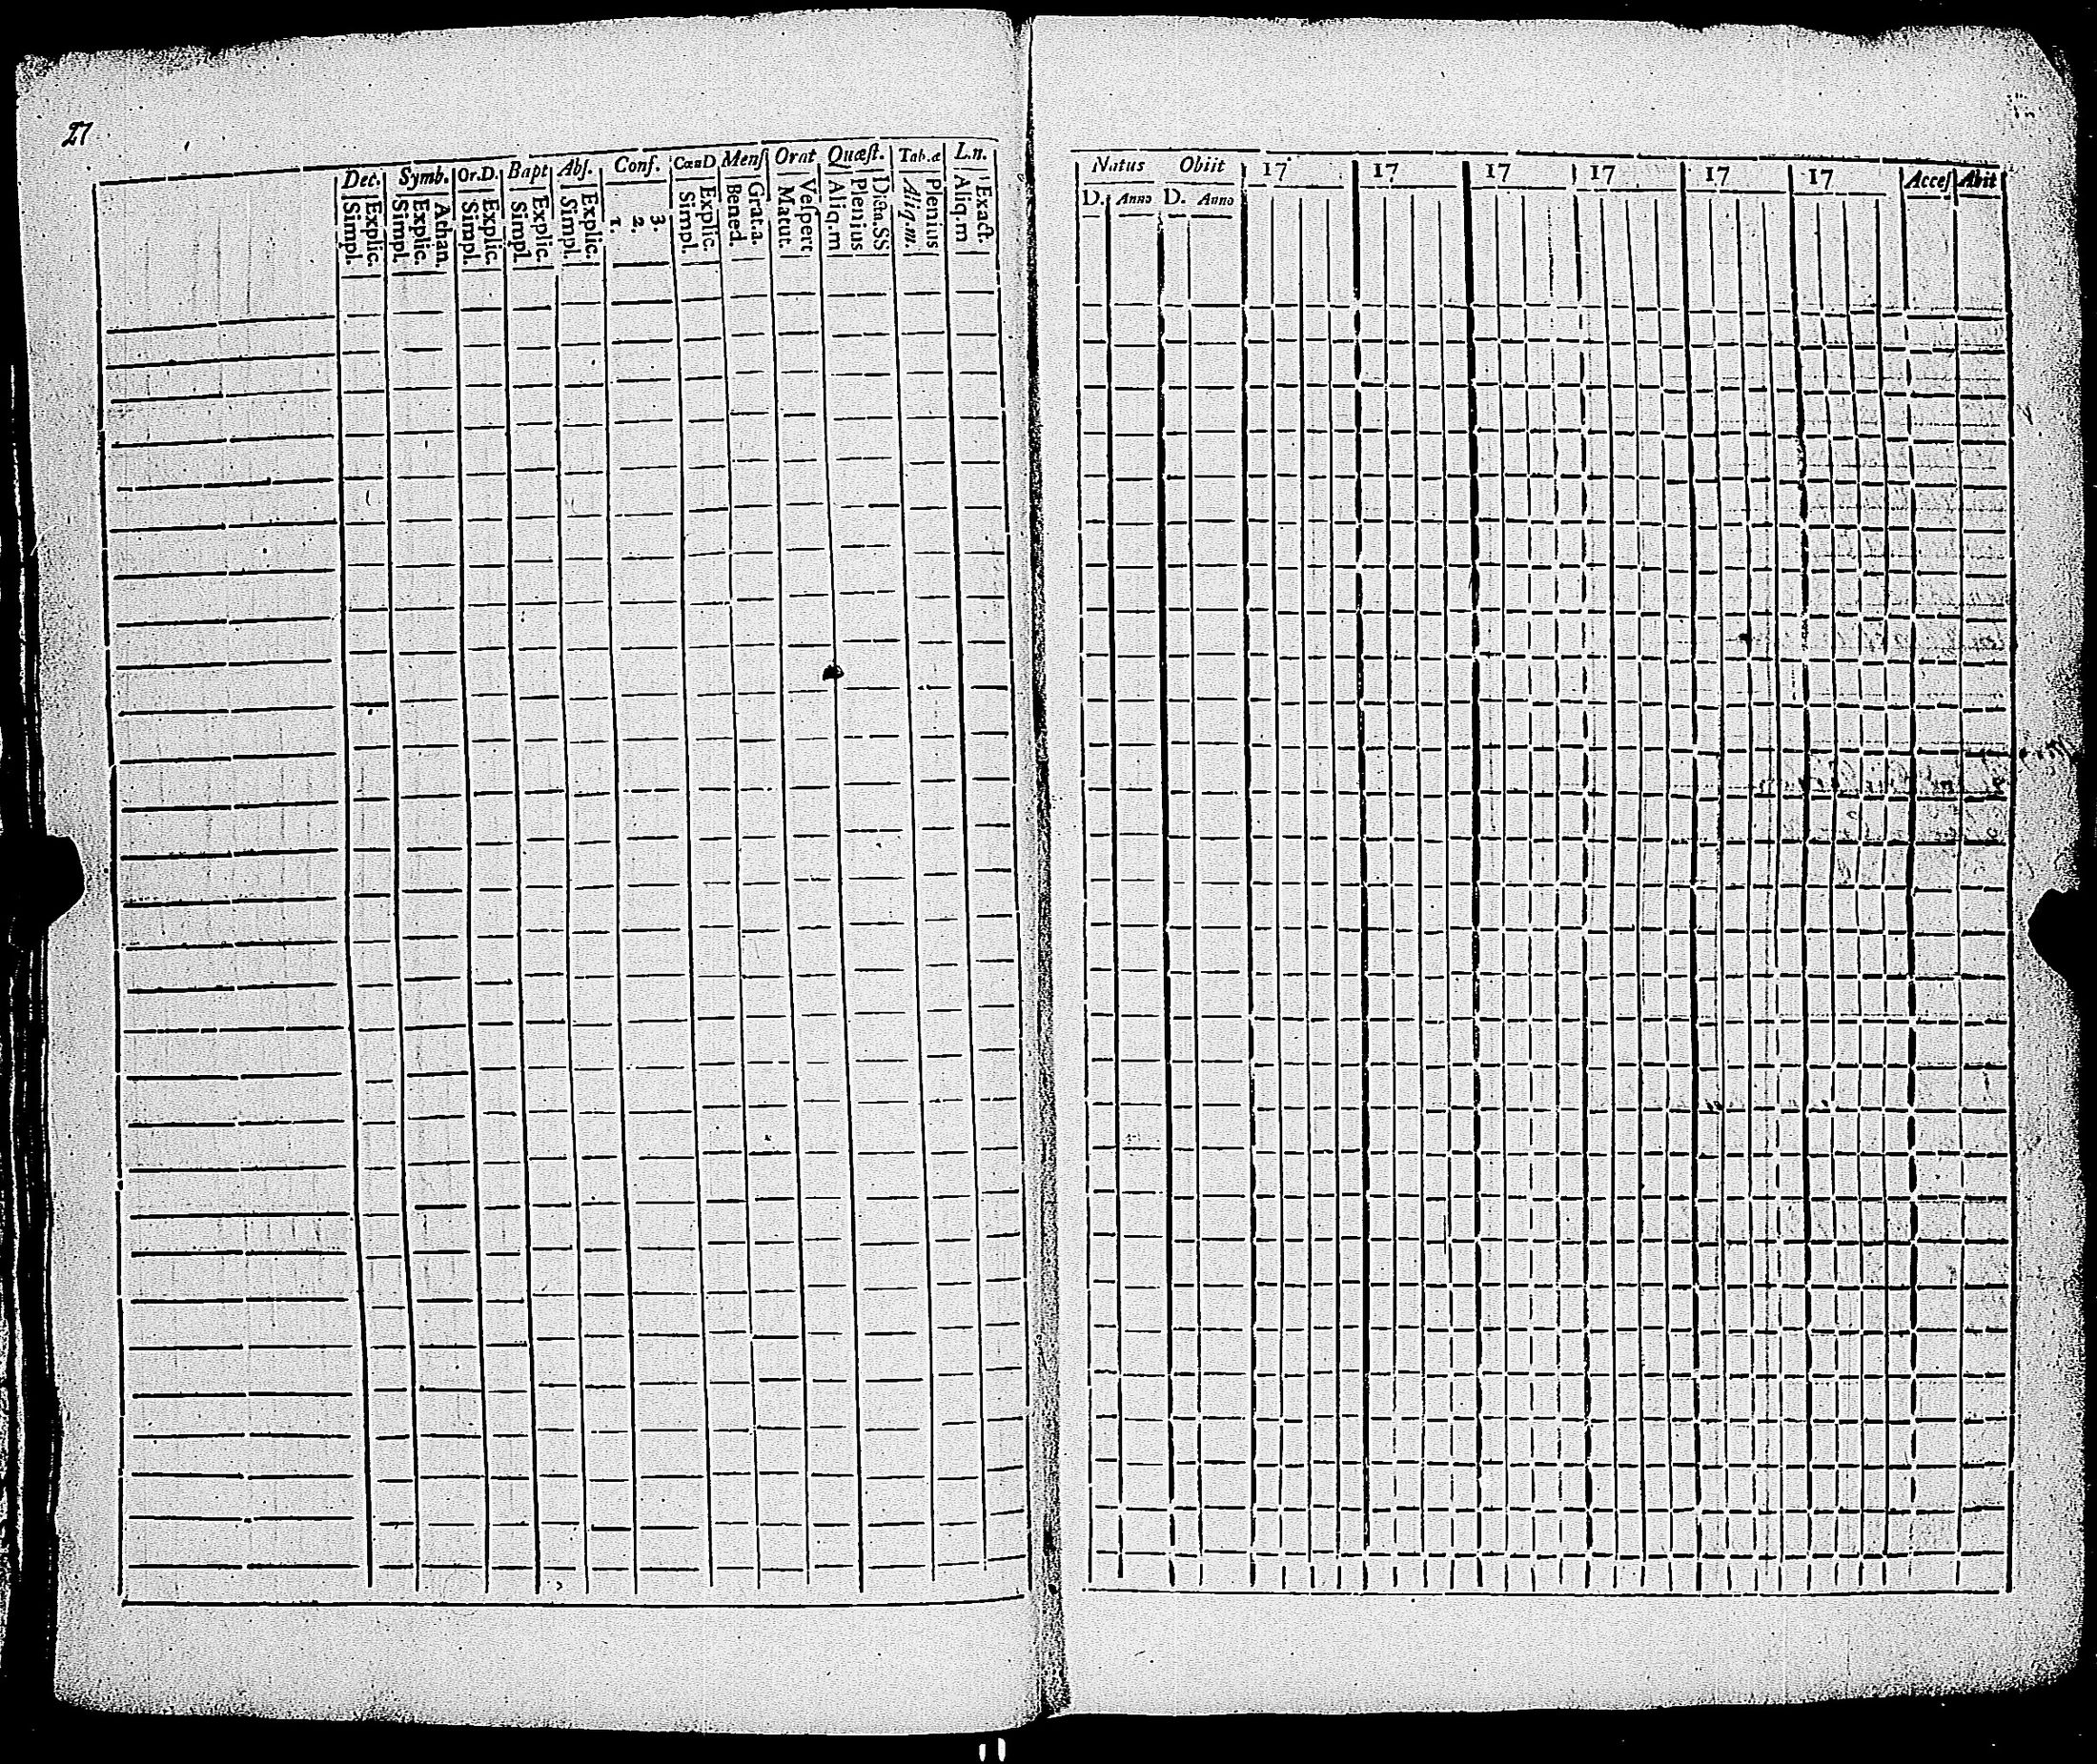 27
Dec. Symb. Or.D. Bapt Abſ. Conf. CœnD Menſ Orat Quæſt. Tab.œ L.n.
Simpl. Explic. Simpl. Explic. Athan. Simpl. Explic. Simpl. Explic. Simpl. Explic. 1. 2. 3. Simpl. Explic. Bened. Grat.a. Matut. Veſpert Aliq.m Plenius Dicta.SS Aliq.m. Plenius Aliq.m Exact.
Natus Obiit 17 17 17 17 17 17 Acceſ Abit
D. Anno D. Anno